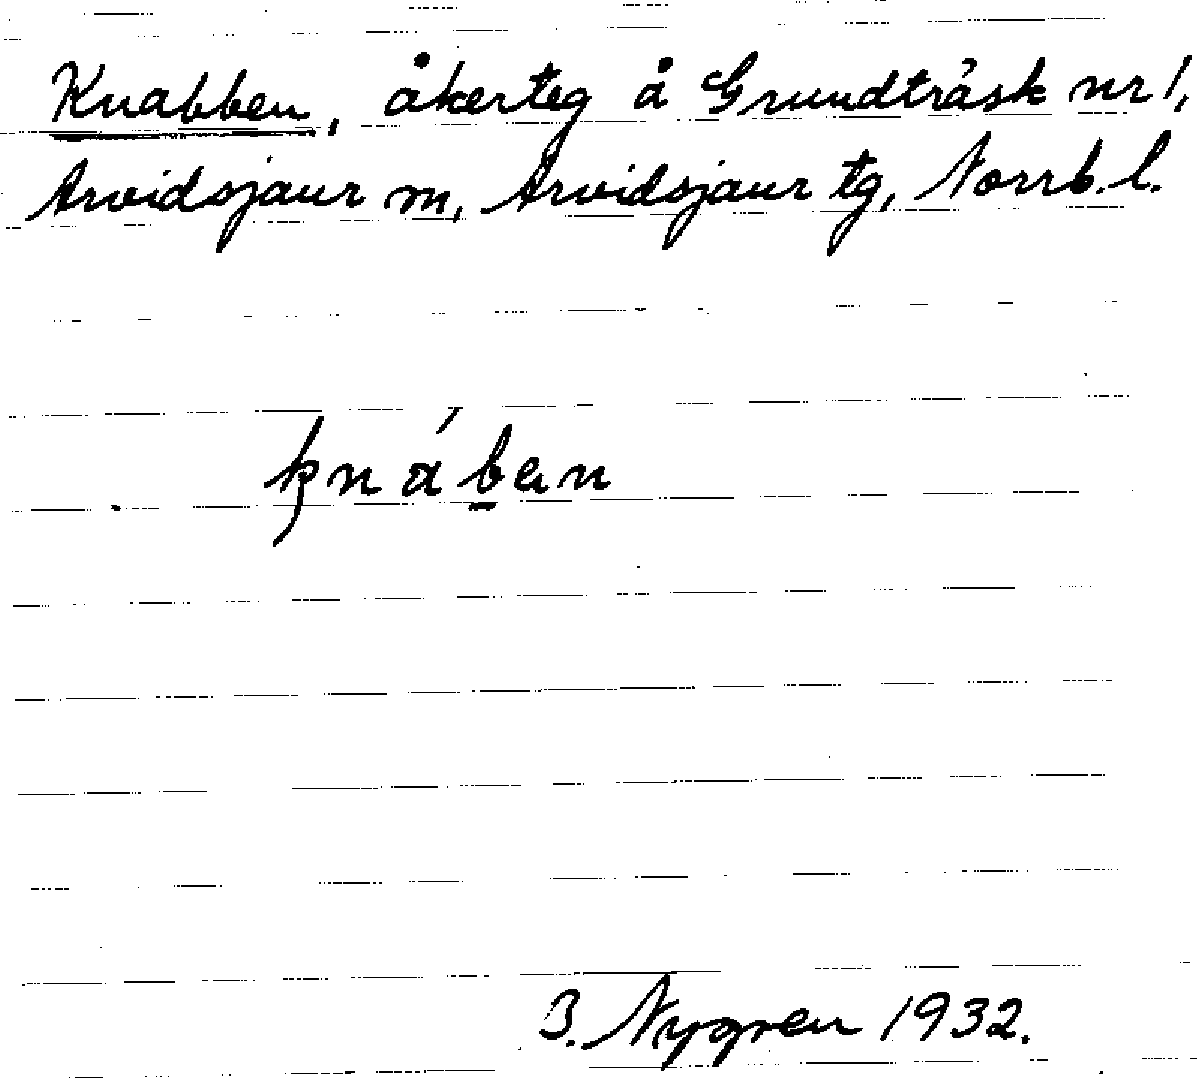 Knabben, åkerteg å Grundträsk nr 1,
Arvidsjaur m, Arvidsjaur tg, Norrb. l.
B. Nygren 1932.